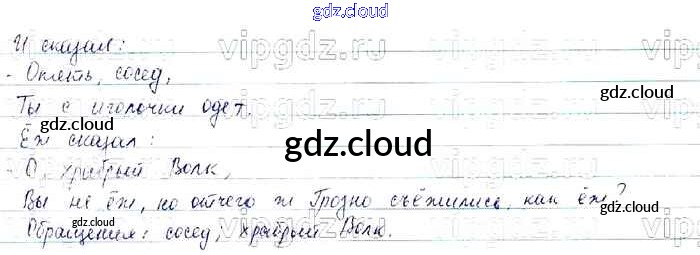 gdz.cloud
И сказал:
- Опять, сосед,
Ты с иголочки одет.
Ёж сказал:
- О, храбрый Волк,
Вы не ёж, но отчего ж Грозно съёжились, как ёж?
Обращения: сосед; храбрый Волк.
vipgdz.ru
gdz.cloud
gdz.cloud
gdz.cloud
gdz.cloud
gdz.cloud